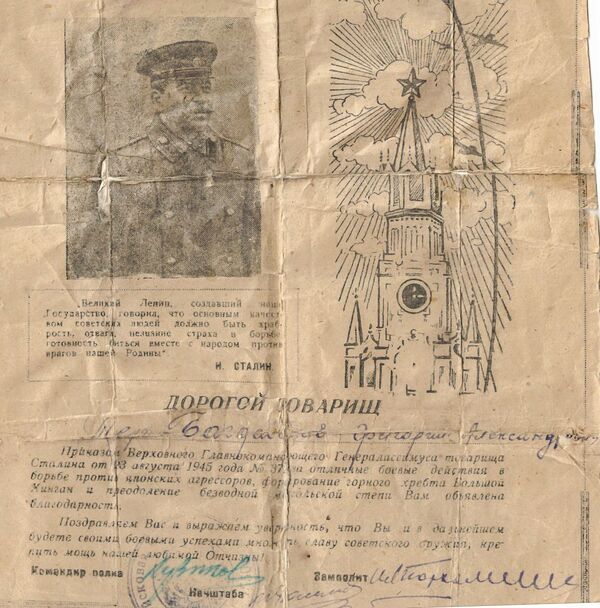 „Великий Ленин, создавший наше
Государство, говорил, что основным качест-
вом советских людей должно быть храб-
рость, отвага, незнание страха в борьбе,
готовность биться вместе с народом против
врагов нашей Родины“
И. СТАЛИН.
ДОРОГОЙ ТОВАРИЩ
Григорий Александрович
Приказом Верховного Главнокомандующего Генералиссимуса товарища
Сталина от 23 августа 1945 года № 37 за отличные боевые действия в
борьбе против японских агрессоров, форсирование горного хребта Большой
Хинган и преодоление безводной монгольской степи Вам объявлена
благодарность.
Поздравляем Вас и выражаем уверенность, что Вы и в дальнейшем
будете своими боевыми успехами множить славу советского оружия, кре-
пить мощь нашей любимой Отчизны!
Командир полка Замполит
Начштаба